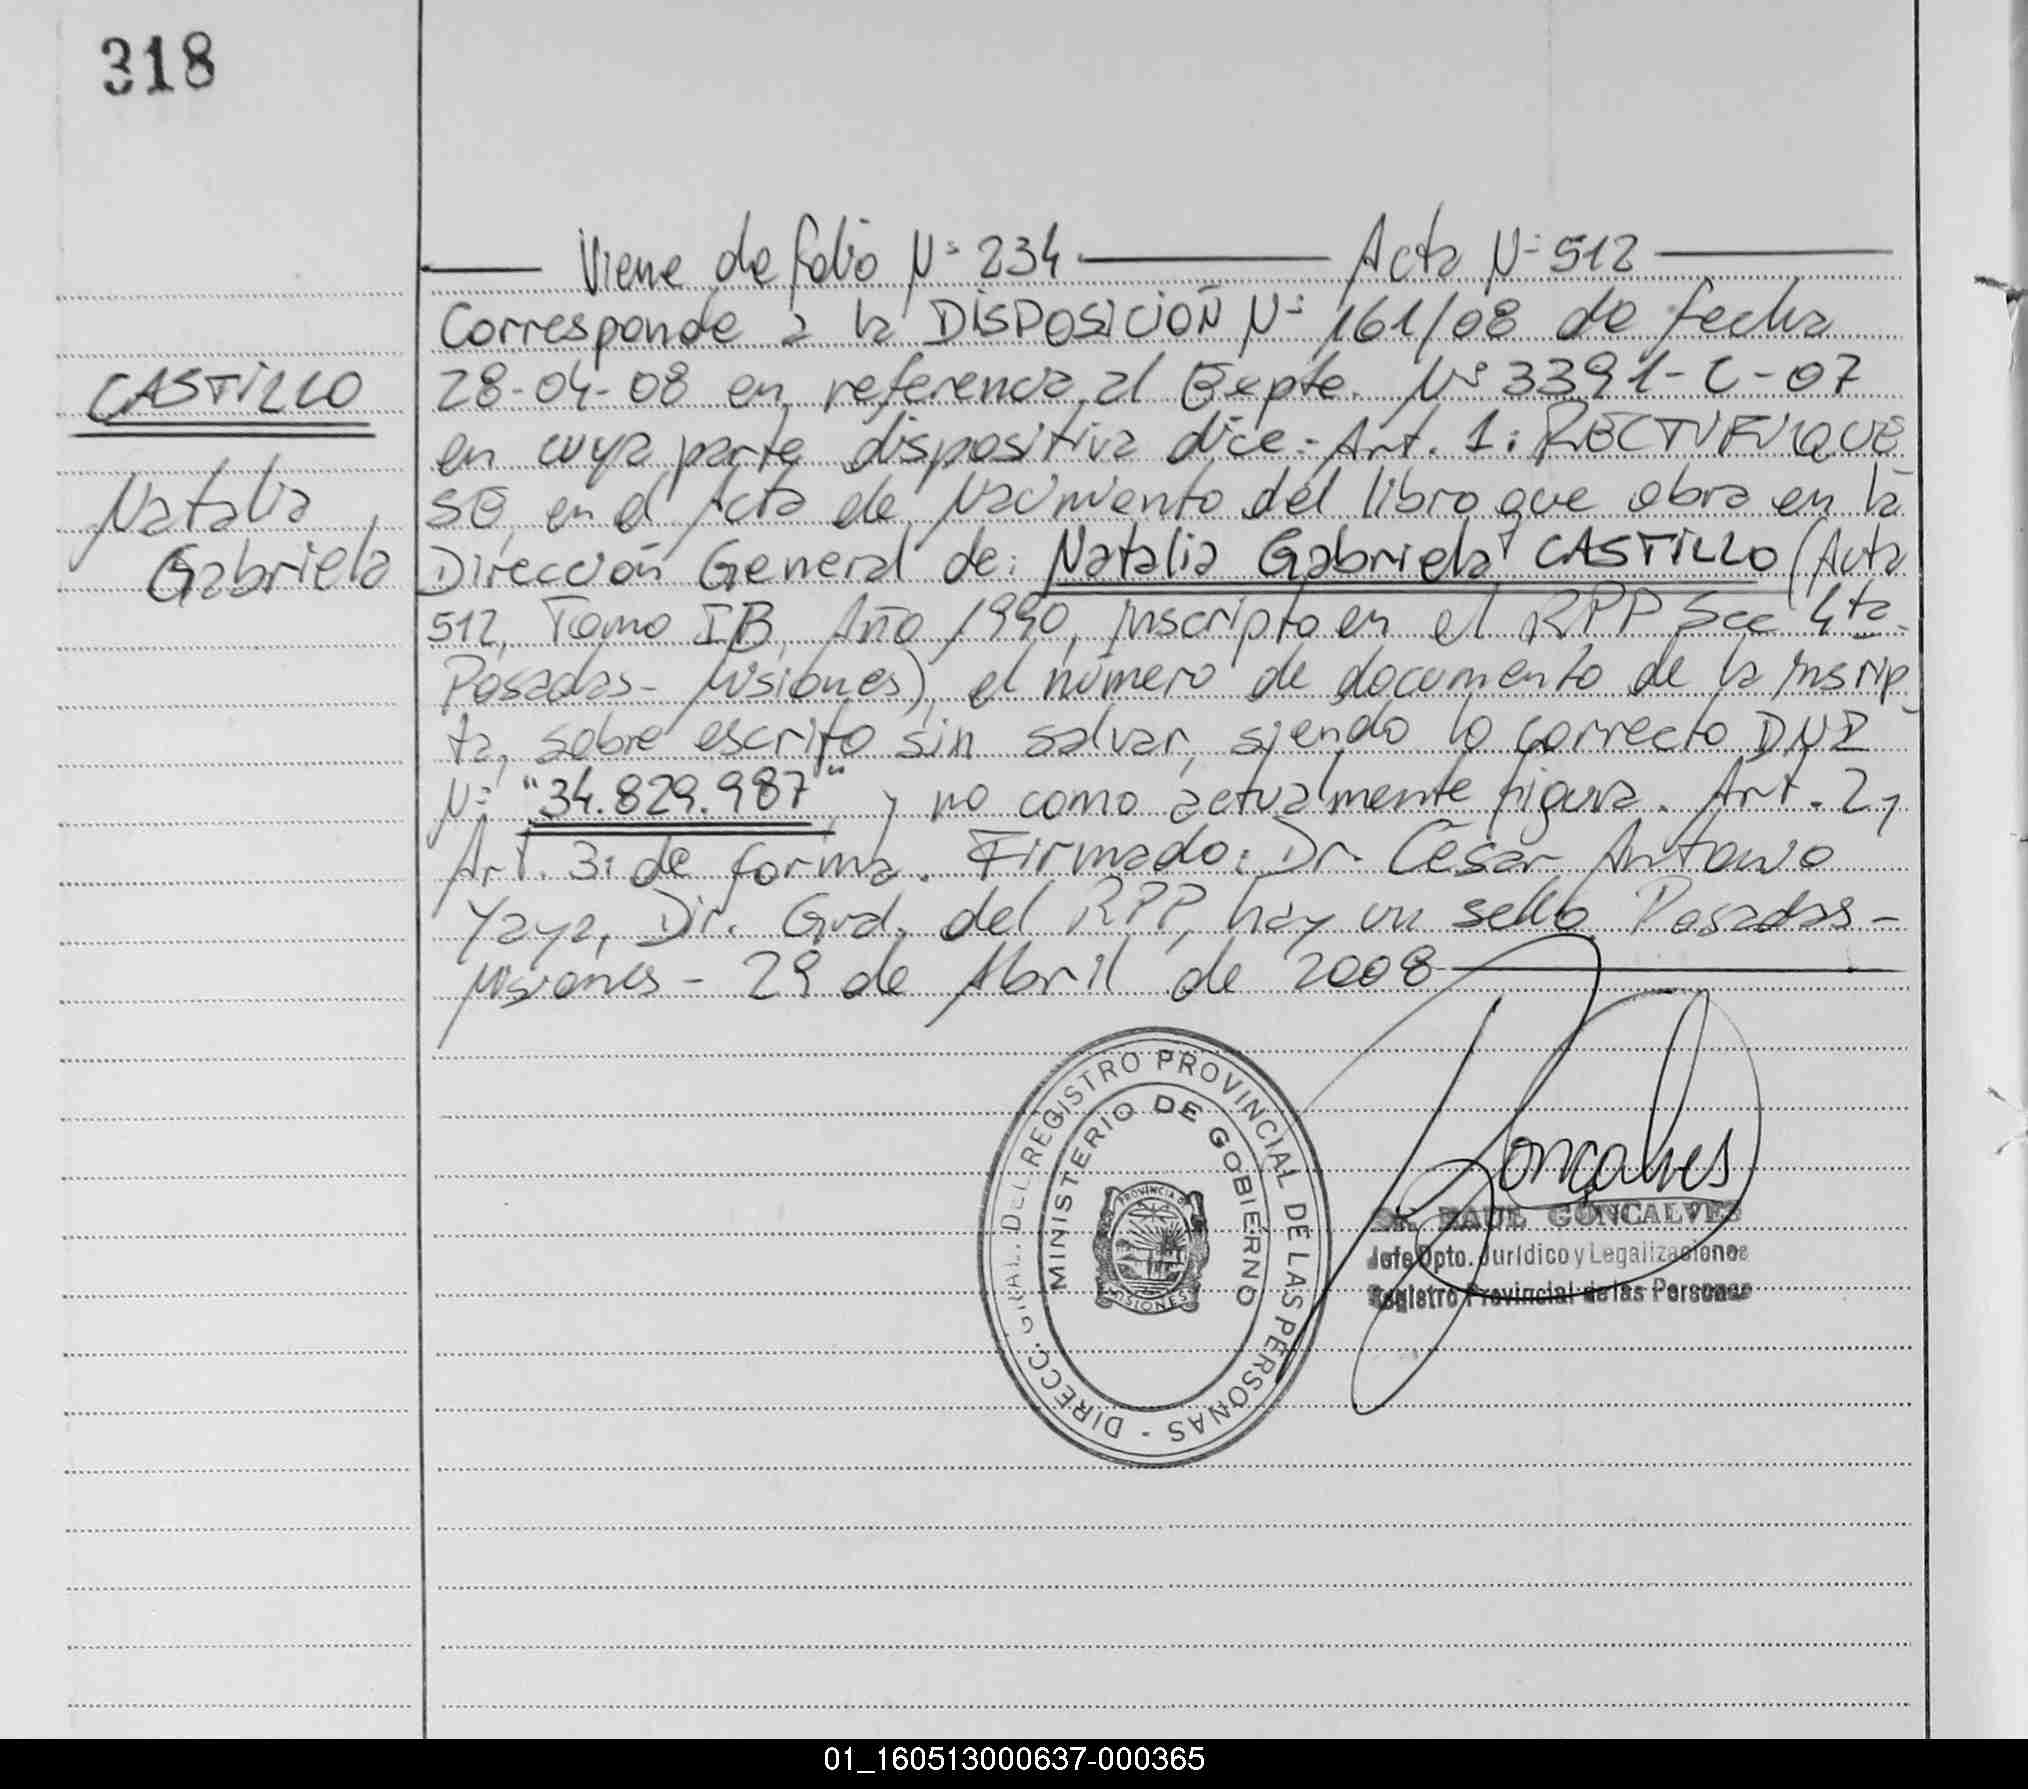 318
Viene de folio Nº 234 Acta Nº 512
Corresponde a la DISPOSICIÓN Nº 161/08 de fecha
CASTILLO
28-04-08 en referencia al Expte. Nº 3391-C-07
en cuya parte dispositiva dice: Art. 1: RECTIFIQUE
Natalia
SE, en el Acta de Nacimiento del libro que obra en la
Gabriela
Dirección General de: Natalia Gabriela CASTILLO (Acta
512, Tomo IB, Año 1990, inscripta en el RPP Sec 4ta.
Posadas - Misiones), el número de documento de la inscrip
ta, sobre escrito sin salvar, siendo lo correcto DNI
Nº "34.829.987", y no como actualmente figura. Art. 2,
Art. 3: de forma. Firmado: Dr. César Antonio
Yaya, Dir. Gral. del RPP, hay un sello. Posadas -
Misiones - 29 de Abril de 2008
DIRECC. GRAL. DEL REGISTRO PROVINCIAL DE LAS PERSONAS -
MINISTERIO DE GOBIERNO
PROVINCIA DE
MISIONES
Gonçalves
Dr. RAUL GONCALVES
Jefe Dpto. Jurídico y Legalizaciones
Registro Provincial de las Personas
01_160513000637-000365